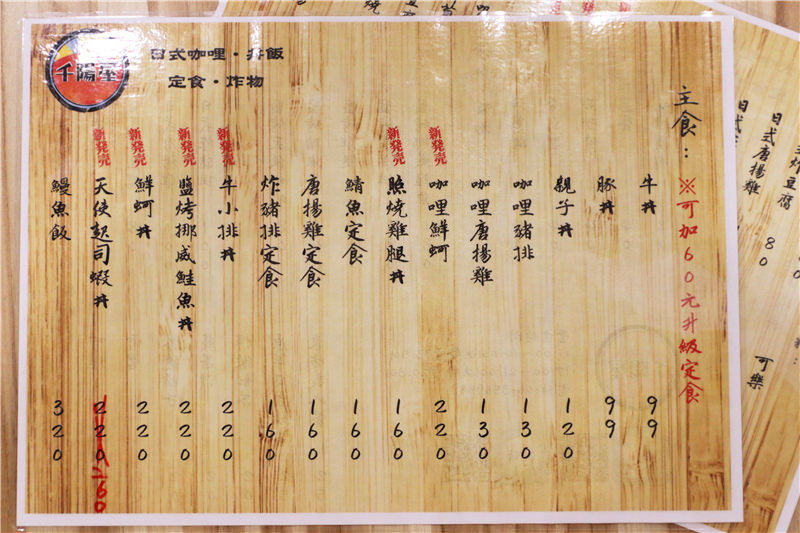 千陽屋
日式咖哩・丼飯
定食・炸物
主食：※可加60元升級定食
牛丼 99
豚丼 99
親子丼 120
咖哩豬排 130
咖哩唐揚雞 130
新発売 咖哩鮮蚵 220
新発売 照燒雞腿丼 160
鯖魚定食 160
唐揚雞定食 160
炸豬排定食 160
新発売 牛小排丼 220
新発売 鹽烤挪威鮭魚丼 220
新発売 鮮蚵丼 220
新発売 天使起司蝦丼 220 160
鰻魚飯 320
豆腐
日式唐揚雞 80
日式
可樂
燒